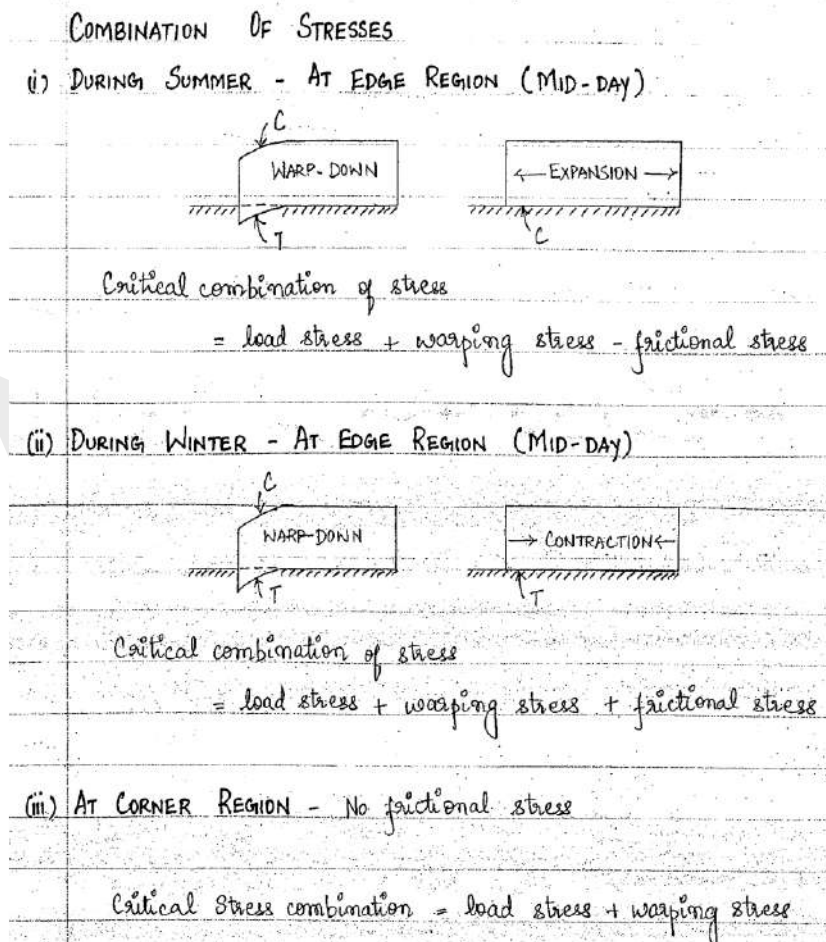 COMBINATION OF STRESSES
(i) DURING SUMMER - AT EDGE REGION (MID-DAY)
C
WARP-DOWN
EXPANSION
T
C
Critical combination of stress
= load stress + warping stress - frictional stress
(ii) DURING WINTER - AT EDGE REGION (MID-DAY)
C
WARP-DOWN
CONTRACTION
T
T
Critical combination of stress
= load stress + warping stress + frictional stress
(iii) AT CORNER REGION - No frictional stress
Critical Stress combination = load stress + warping stress